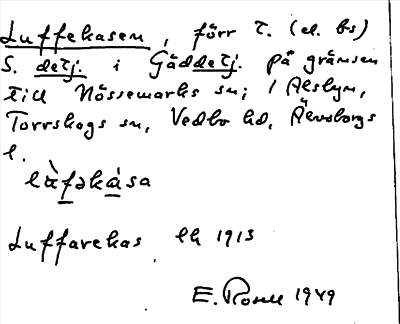 Luffekasen, förr T. (el. bs)
S. detj. i Gäddetj. på gränsen
till Nössemarks sn; 1 Alsbyn,
Torrskogs sn, Vedbo hd, Älvsborgs
l.
làfəkása
Luffarekas lk 1913
E. Rosell 1949